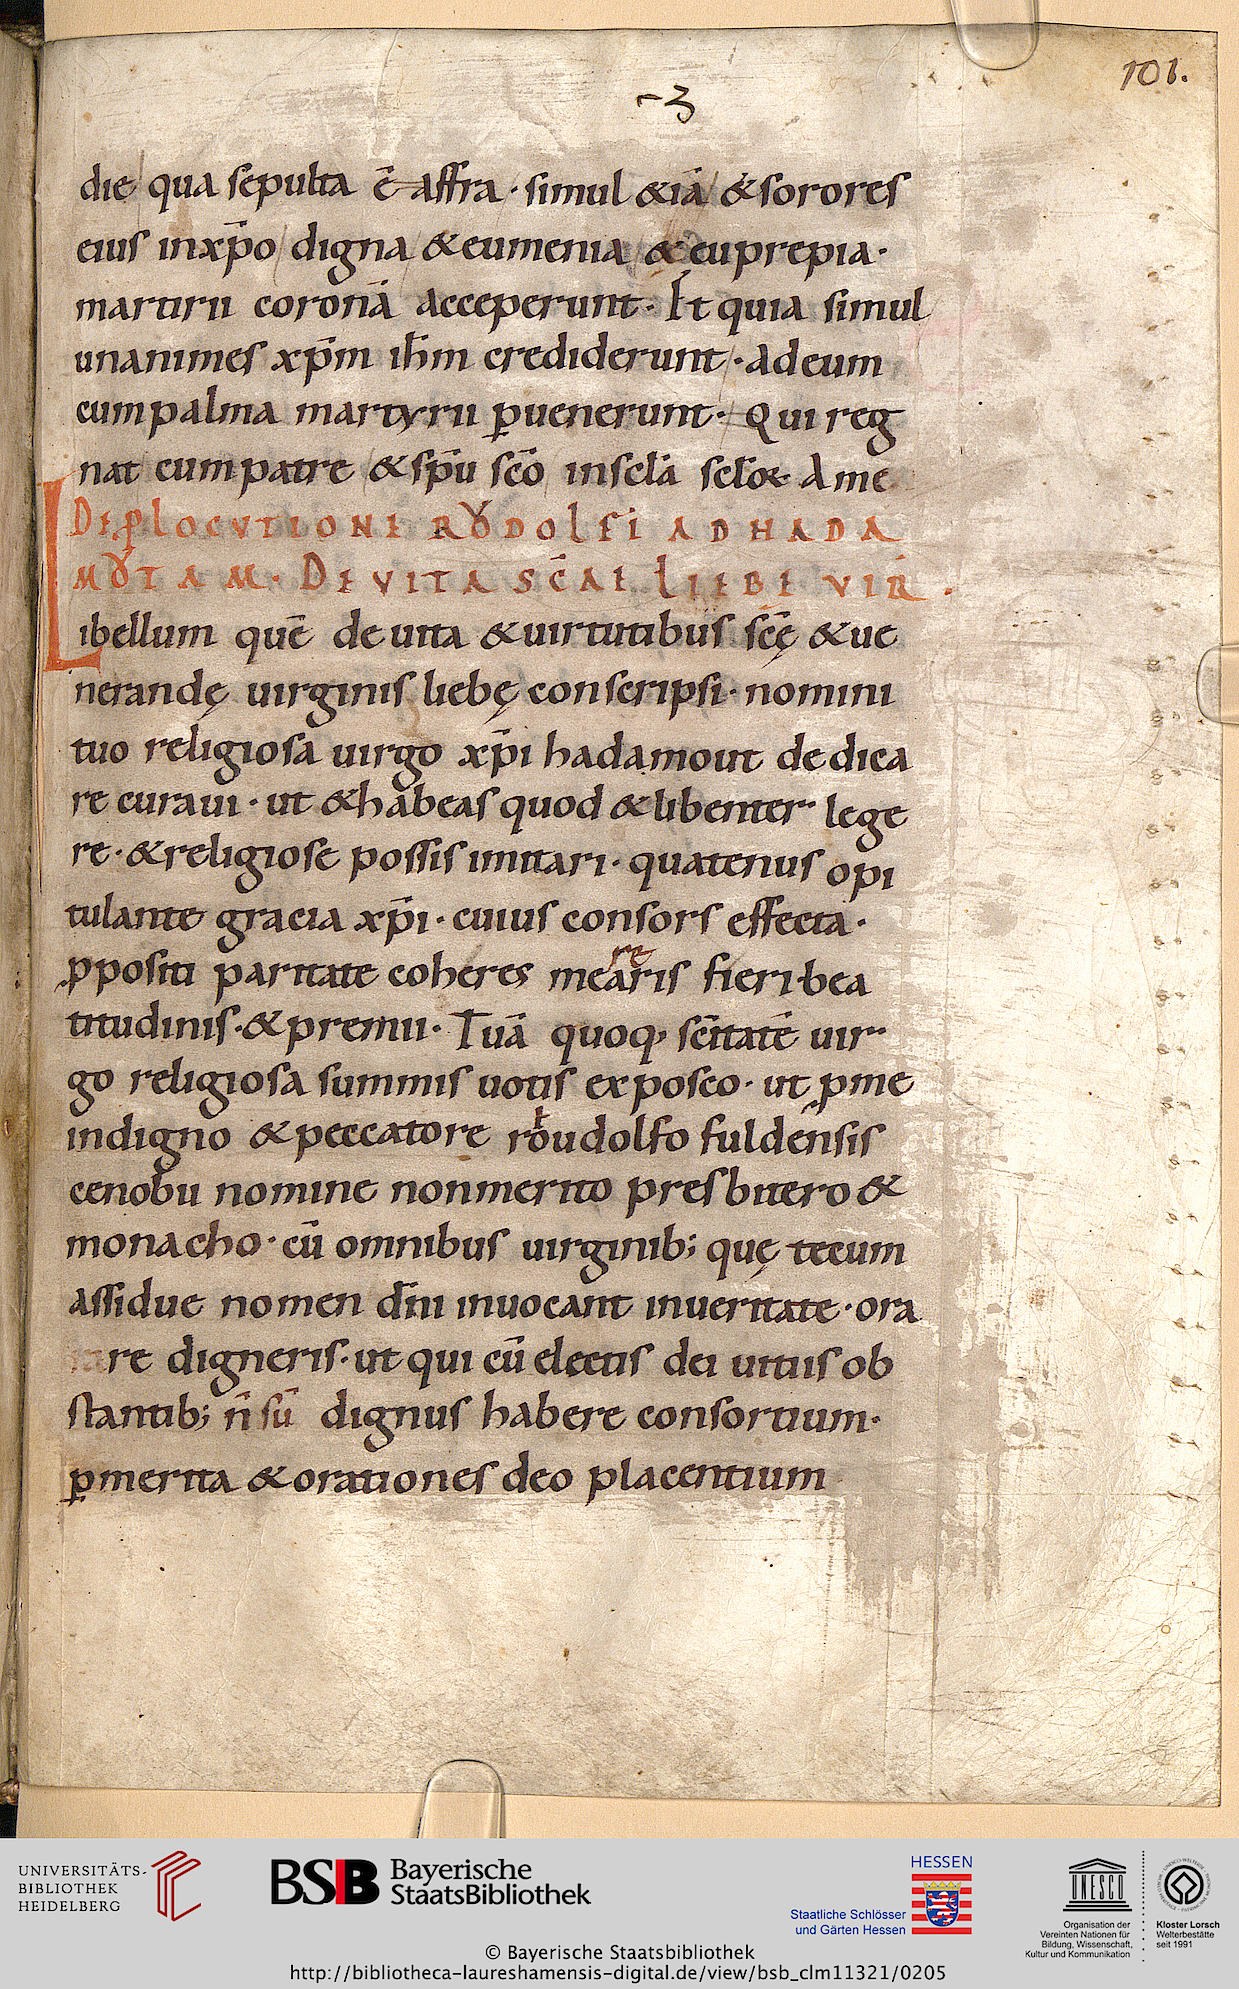 101.
die qua sepulta ē affra · simul &iā & sorores
eius in xp̄o digna & eumenia & euprepia·
martirii coronā acceperunt· Et quia simul
unanimes xp̄m ih̄m crediderunt · ad eum
cum palma martyrii ꝑuenerunt· Qui reg
nat cum patre & sp̄u sc̄o in sc̄la sc̄loꝝ Ame
DE ꝑLOCVTIONE RVͦDOLFI AD HADA
MVͦTAM. DE VITA SC̄AE LIEBE VIR̄.
Libellum quē de uita & uirtutibus sc̄ę & ue
nerandę uirginis liebę conscripsi· nomini
tuo religiosa uirgo xp̄i hadamout dedica
re curaui · ut & habeas quod & libenter lege
re· & religiose possis imitari· quatenus opi
tulante gracia xp̄i· cuius consors effecta·
ꝓpositi paritate coheres mearis fieri bea
re
titudinis· & premii· Tuā quoq; sc̄itatē uir
go religiosa summis uotis exposco· ut ꝑ me
indigno & peccatore roudolfo fuldensis
cenobii nomine non merito presbitero &
monacho· cū omnibus uirginib; quę tecum
assidue nomen dn̄i inuocant in ueritate· ora
re digneris· ut qui cū electis dei uitiis ob
stantib; n̄ sū dignus habere consortium·
ꝑ merita & orationes deo placentium
UNIVERSITÄTS-
BIBLIOTHEK
HEIDELBERG
BSB Bayerische
StaatsBibliothek
HESSEN
Staatliche Schlösser
und Gärten Hessen
UNESCO
Organisation der
Vereinten Nationen für
Bildung, Wissenschaft,
Kultur und Kommunikation
Kloster Lorsch
Welterbestätte
seit 1991
© Bayerische Staatsbibliothek
http://bibliotheca-laureshamensis-digital.de/view/bsb_clm11321/0205